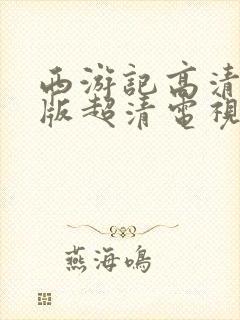 西游記高清
版超清電視
燕海鳴